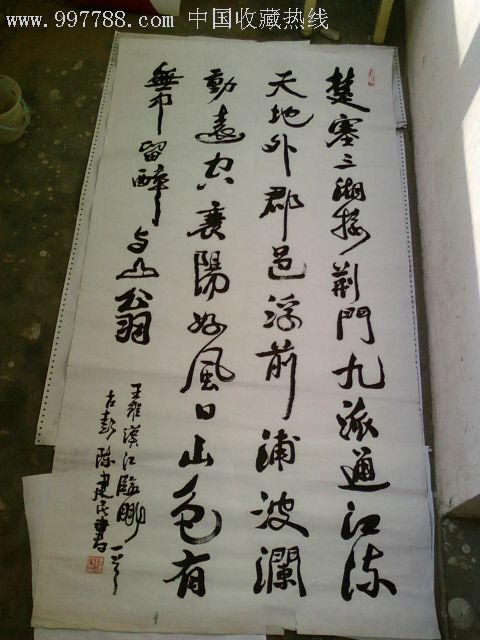 www.997788.com 中国收藏热线
楚塞三湘接荆門九派通江流
天地外郡邑浮前浦波瀾
動遠空襄陽好風日山色有
無中留醉与山翁
王維漢江臨眺一首
古彭陳建民書